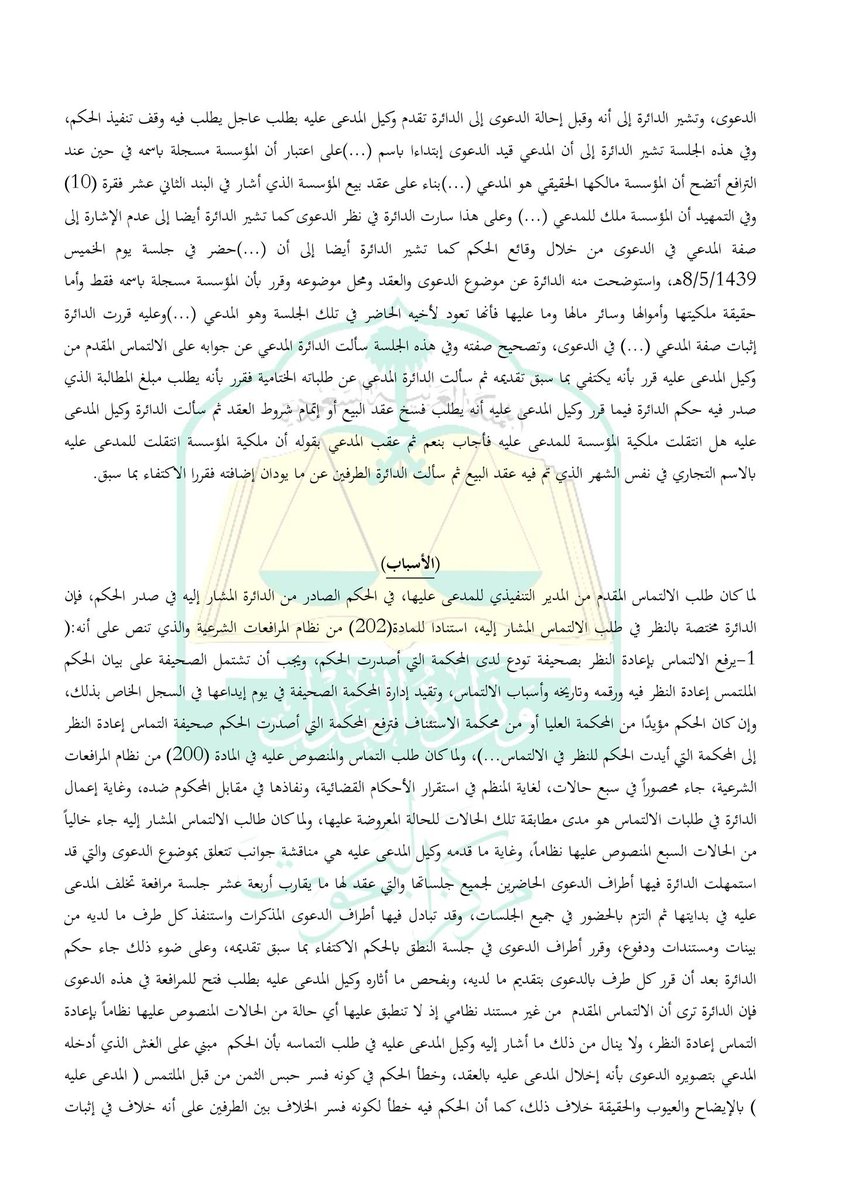 الدعوى، وتشير الدائرة إلى أنه وقبل إحالة الدعوى إلى الدائرة تقدم وكيل المدعى عليه بطلب عاجل يطلب فيه وقف تنفيذ الحكم،
وفي هذه الجلسة تشير الدائرة إلى أن المدعي قيد الدعوى إبتداءا باسم (...)على اعتبار أن المؤسسة مسجلة باسمه في حين عند
الترافع أتضح أن المؤسسة مالكها الحقيقي هو المدعي (...)بناء على عقد بيع المؤسسة الذي أشار في البند الثاني عشر فقرة (10)
وفي التمهيد أن المؤسسة ملك للمدعي (...) وعلى هذا سارت الدائرة في نظر الدعوى كما تشير الدائرة أيضا إلى عدم الإشارة إلى
صفة المدعي في الدعوى من خلال وقائع الحكم كما تشير الدائرة أيضا إلى أن (...)حضر في جلسة يوم الخميس
8/5/1439هـ، واستوضحت منه الدائرة عن موضوع الدعوى والعقد ومحل موضوعه وقرر بأن المؤسسة مسجلة باسمه فقط وأما
حقيقة ملكيتها وأموالها وسائر مالها وما عليها فأنها تعود لأخيه الحاضر في تلك الجلسة وهو المدعي (...)وعليه قررت الدائرة
إثبات صفة المدعي (...) في الدعوى، وتصحيح صفته وفي هذه الجلسة سألت الدائرة المدعي عن جوابه على الالتماس المقدم من
وكيل المدعى عليه قرر بأنه يكتفي بما سبق تقديمه ثم سألت الدائرة المدعي عن طلباته الختامية فقرر بأنه يطلب مبلغ المطالبة الذي
صدر فيه حكم الدائرة فيما قرر وكيل المدعى عليه أنه يطلب فسخ عقد البيع أو إتمام شروط العقد ثم سألت الدائرة وكيل المدعى
عليه هل انتقلت ملكية المؤسسة للمدعى عليه فأجاب بنعم ثم عقب المدعي بقوله أن ملكية المؤسسة انتقلت للمدعى عليه
بالاسم التجاري في نفس الشهر الذي تم فيه عقد البيع ثم سألت الدائرة الطرفين عن ما يودان إضافته فقررا الاكتفاء بما سبق.
(الأسباب)
لما كان طلب الالتماس المقدم من المدير التنفيذي للمدعى عليها، في الحكم الصادر من الدائرة المشار إليه في صدر الحكم، فإن
الدائرة مختصة بالنظر في طلب الالتماس المشار إليه، استنادا للمادة(202) من نظام المرافعات الشرعية والذي تنص على أنه:(
1-يرفع الالتماس بإعادة النظر بصحيفة تودع لدى المحكمة التي أصدرت الحكم، ويجب أن تشتمل الصحيفة على بيان الحكم
الملتمس إعادة النظر فيه ورقمه وتاريخه وأسباب الالتماس، وتقيد إدارة المحكمة الصحيفة في يوم إيداعها في السجل الخاص بذلك،
وإن كان الحكم مؤيدًا من المحكمة العليا أو من محكمة الاستئناف فترفع المحكمة التي أصدرت الحكم صحيفة التماس إعادة النظر
إلى المحكمة التي أيدت الحكم للنظر في الالتماس...)، ولما كان طلب التماس والمنصوص عليه في المادة (200) من نظام المرافعات
الشرعية، جاء محصوراً في سبع حالات، لغاية المنظم في استقرار الأحكام القضائية، ونفاذها في مقابل المحكوم ضده، وغاية إعمال
الدائرة في طلبات الالتماس هو مدى مطابقة تلك الحالات للحالة المعروضة عليها، ولما كان طالب الالتماس المشار إليه جاء خالياً
من الحالات السبع المنصوص عليها نظاماً، وغاية ما قدمه وكيل المدعى عليه هي مناقشة جوانب تتعلق بموضوع الدعوى والتي قد
استمهلت الدائرة فيها أطراف الدعوى الحاضرين لجميع جلساتها والتي عقد لها ما يقارب أربعة عشر جلسة مرافعة تخلف المدعى
عليه في بدايتها ثم التزم بالحضور في جميع الجلسات، وقد تبادل فيها أطراف الدعوى المذكرات واستنفذ كل طرف ما لديه من
بينات ومستندات ودفوع، وقرر أطراف الدعوى في جلسة النطق بالحكم الاكتفاء بما سبق تقديمه، وعلى ضوء ذلك جاء حكم
الدائرة بعد أن قرر كل طرف بالدعوى بتقديم ما لديه، وبفحص ما أثاره وكيل المدعى عليه بطلب فتح للمرافعة في هذه الدعوى
فإن الدائرة ترى أن الالتماس المقدم من غير مستند نظامي إذ لا تنطبق عليها أي حالة من الحالات المنصوص عليها نظاماً بإعادة
التماس إعادة النظر، ولا ينال من ذلك ما أشار إليه وكيل المدعى عليه في طلب التماسه بأن الحكم مبني على الغش الذي أدخله
المدعي بتصويره الدعوى بأنه إخلال المدعى عليه بالعقد، وخطأ الحكم في كونه فسر حبس الثمن من قبل الملتمس ( المدعى عليه
) بالإيضاح والعيوب والحقيقة خلاف ذلك، كما أن الحكم فيه خطأ لكونه فسر الخلاف بين الطرفين على أنه خلاف في إثبات
وزارة العدل
مركز البحوث